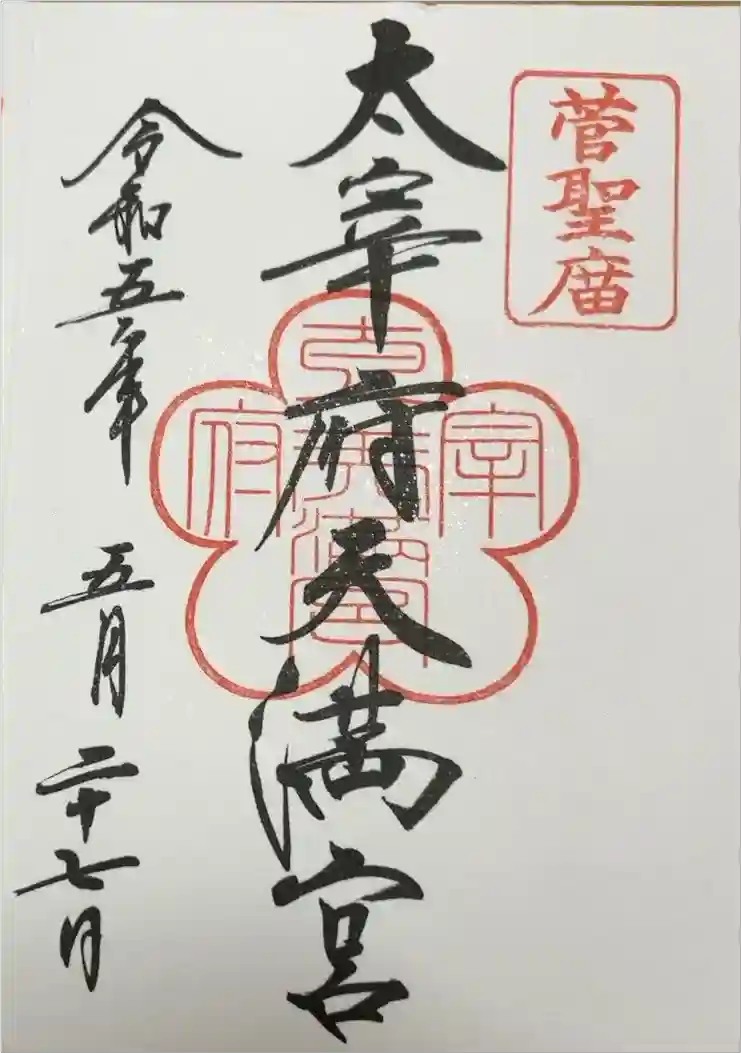 菅聖庿
太宰府天満宮
太宰府天満宮
令和五年 五月二十七日